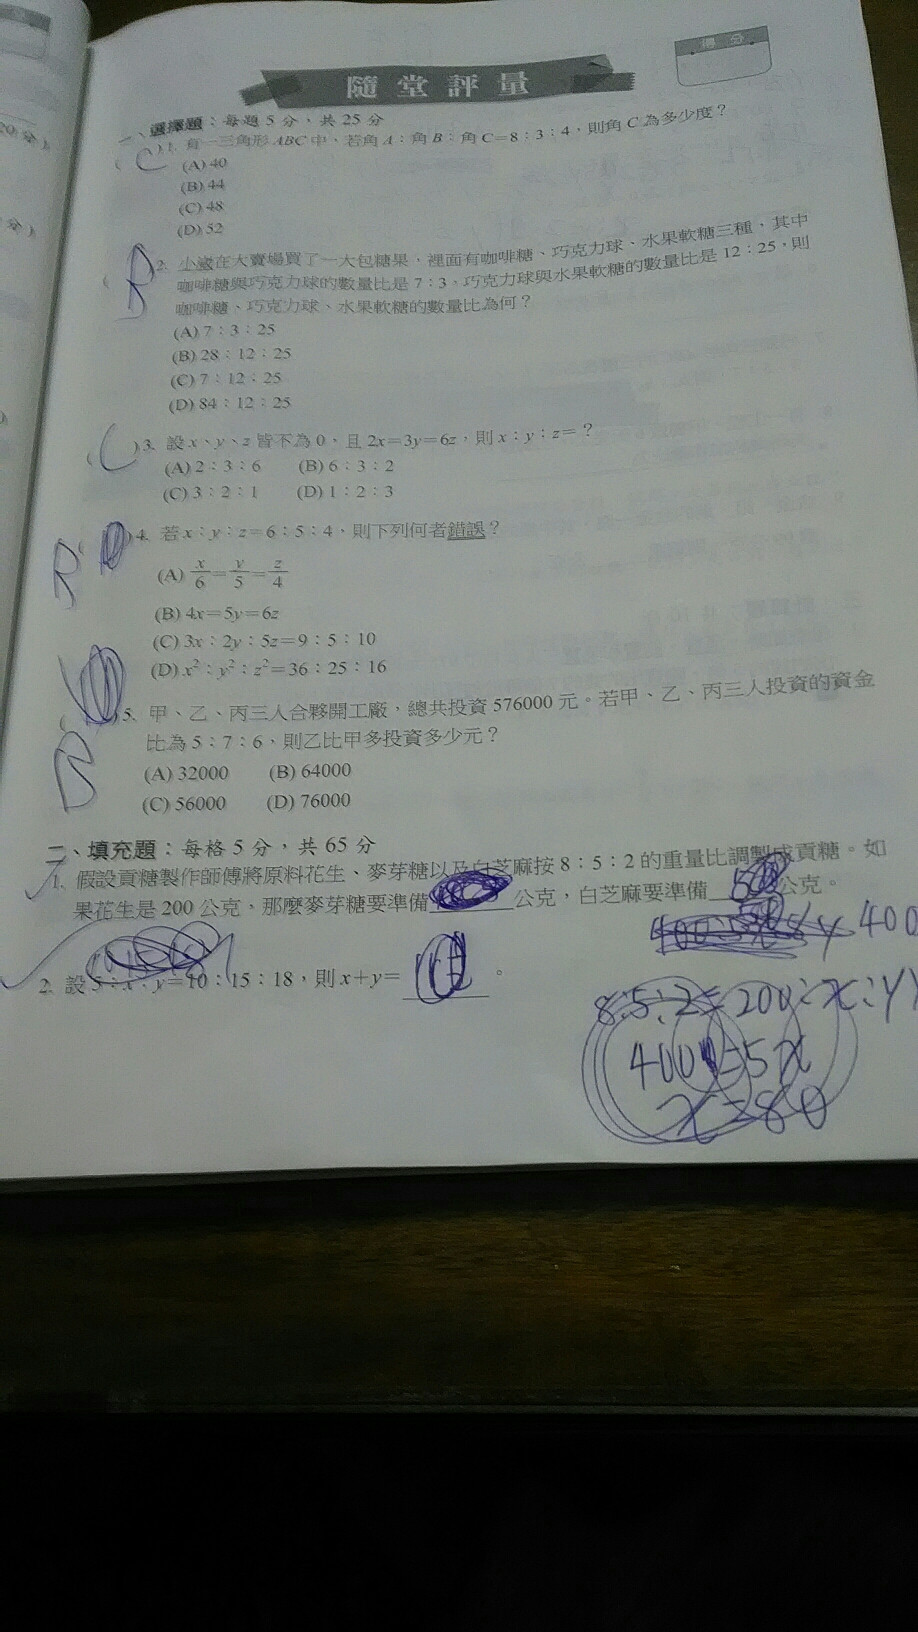 得分
隨堂評量
20分)
分)
一、選擇題：每題5分，共25分
( C )1. 有一三角形ABC中，若角A：角B：角C=8：3：4，則角C為多少度？
(A) 40
(B) 44
(C) 48
(D) 52
( B 2. 在大賣場買了一大包糖果，裡面有咖啡糖、巧克力球、水果軟糖三種，其中
咖啡糖與巧克力球的數量比是7：3，巧克力球與水果軟糖的數量比是12：25，則
咖啡糖、巧克力球、水果軟糖的數量比為何？
(A) 7：3：25
(B) 28：12：25
(C) 7：12：25
(D) 84：12：25
( C )3. 設x、y、z皆不為0，且2x=3y=6z，則x：y：z=？
(A) 2：3：6 (B) 6：3：2
(C) 3：2：1 (D) 1：2：3
B ( )4. 若x：y：z=6：5：4，則下列何者錯誤？
(A) x/6=y/5=z/4
(B) 4x=5y=6z
(C) 3x：2y：5z=9：5：10
(D) x²：y²：z²=36：25：16
B ( )5. 甲、乙、丙三人合夥開工廠，總共投資576000元。若甲、乙、丙三人投資的資金
比為5：7：6，則乙比甲多投資多少元？
(A) 32000 (B) 64000
(C) 56000 (D) 76000
二、填充題：每格5分，共65分
1. 假設貢糖製作師傅將原料花生、麥芽糖以及白芝麻按8：5：2的重量比調製成貢糖。如
果花生是200公克，那麼麥芽糖要準備 公克，白芝麻要準備 50 公克。
400
2. 設5：x：y=10：15：18，則x+y= 。
8:5:2=200:x:y
400=5x
x=80